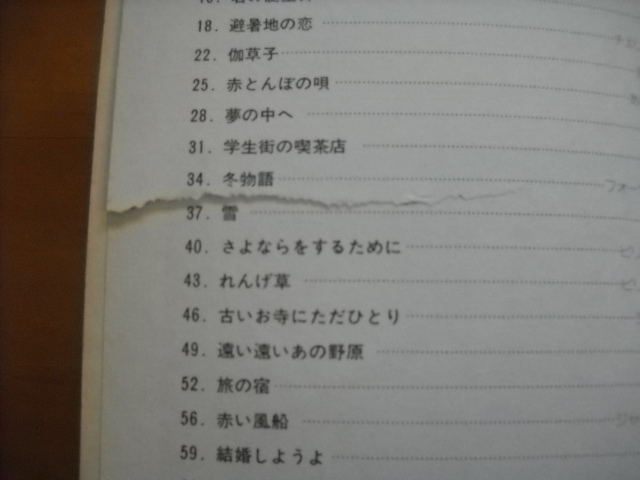 18. 避暑地の恋
22. 伽草子
25. 赤とんぼの唄
28. 夢の中へ
31. 学生街の喫茶店
34. 冬物語 フォー
37. 雪
40. さよならをするために
43. れんげ草
46. 古いお寺にただひとり
49. 遠い遠いあの野原
52. 旅の宿
56. 赤い風船 ジャ
59. 結婚しようよ